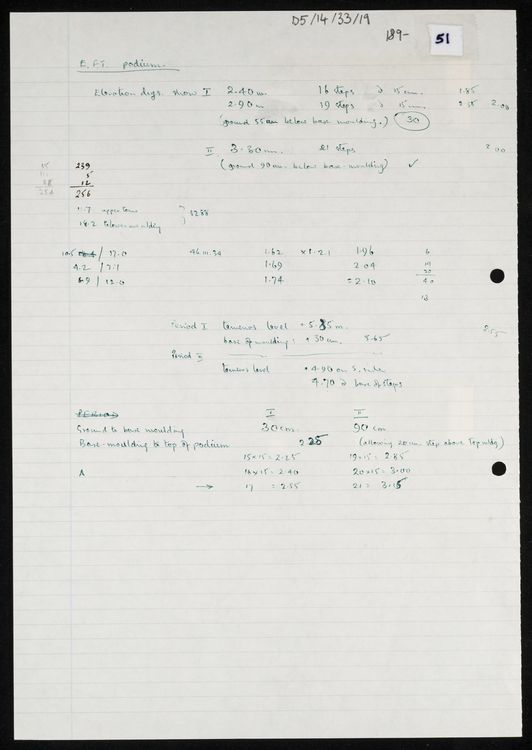 D5/14/33/19
189-
51
E. F.T. podium.
Elevation dwgs. show I 2.40 m. 16 steps @ 15 cm. 1.85
2.90 m 19 steps @ 15 cm. 2.00
(ground 55 cm below base moulding.) 30
II 3.30 m. 21 steps 2.00
(ground 90 cm. below base-moulding) ✓
15 239
11. 5
28 12
254 256
11.7 upper torus
18.2 lower moulding
10.5 / 17.0 46.111.34 1.62 × 1.21 1.96 6
4.2 / 7.1 1.69 2.04
6.9 / 12.0 1.74 = 2.10 40
13
Period I temenos level + 5.85 m. 2.55
base of moulding: + 30 cm. 5.65
Period II
temenos level + 4.90 on S. side
4.70 @ base of steps
PERIOD I II
Ground to base moulding 30 cm. 90 cm
Base-moulding to top of podium 2.25 (allowing 20 cm step above top mldg.)
15 × 15 = 2.25 19 × 15 = 2.85
A 16 × 15 = 2.40 20 × 15 = 3.00
→ 17 = 2.55 21 = 3.15